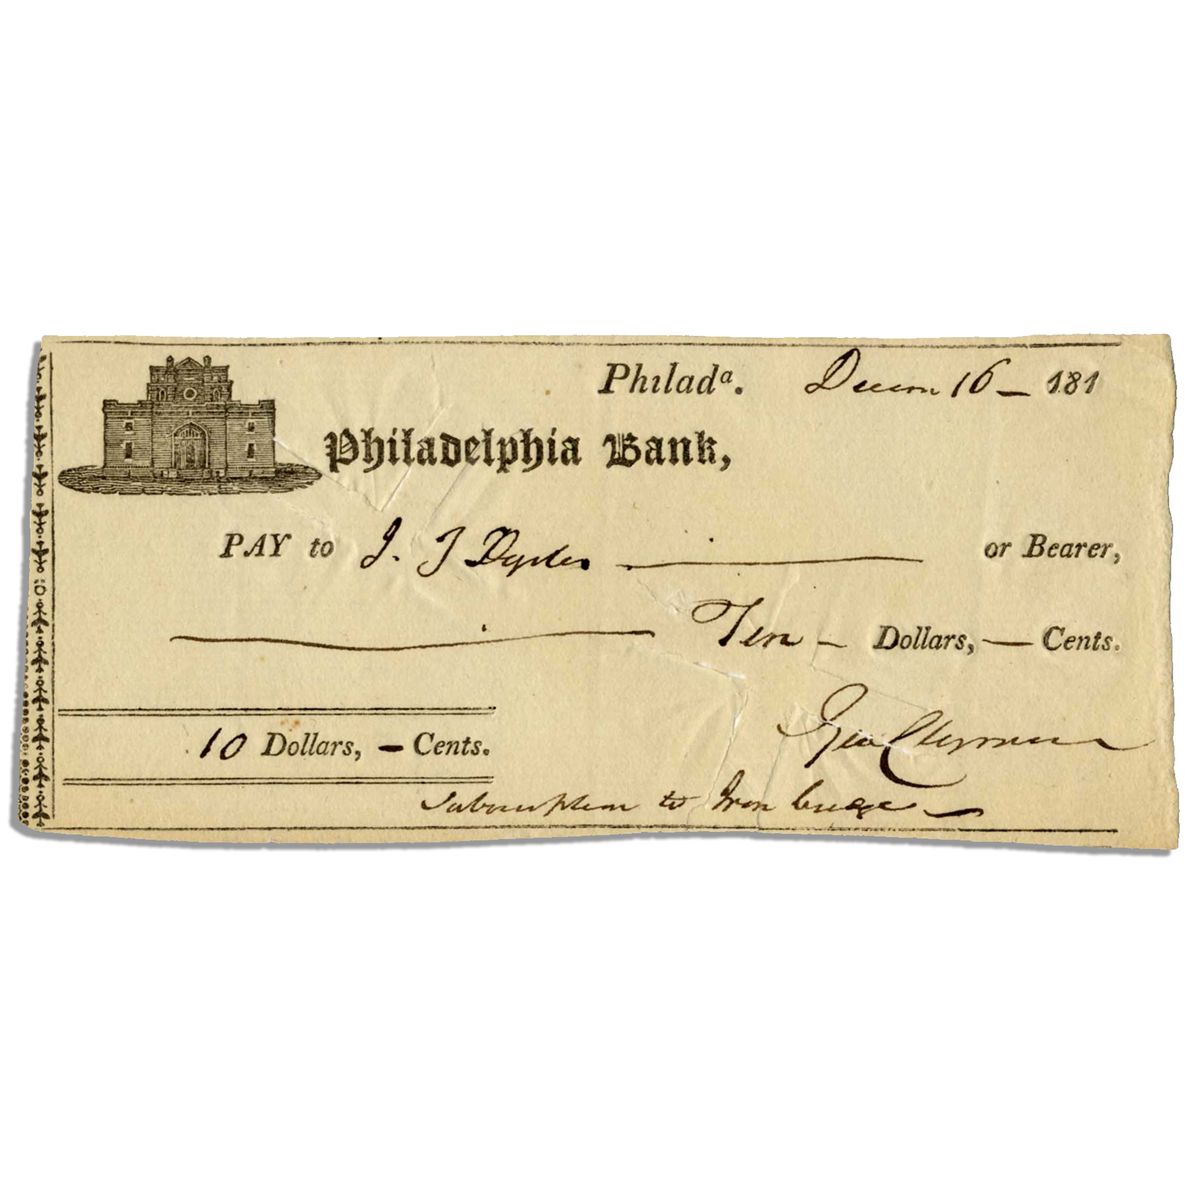 Philadᵃ. Decem 16 — 181
Philadelphia Bank,
PAY to J. J — or Bearer,
Ten — Dollars, — Cents.
10 Dollars, — Cents.
Geo Clymer
Subscription to Iron —